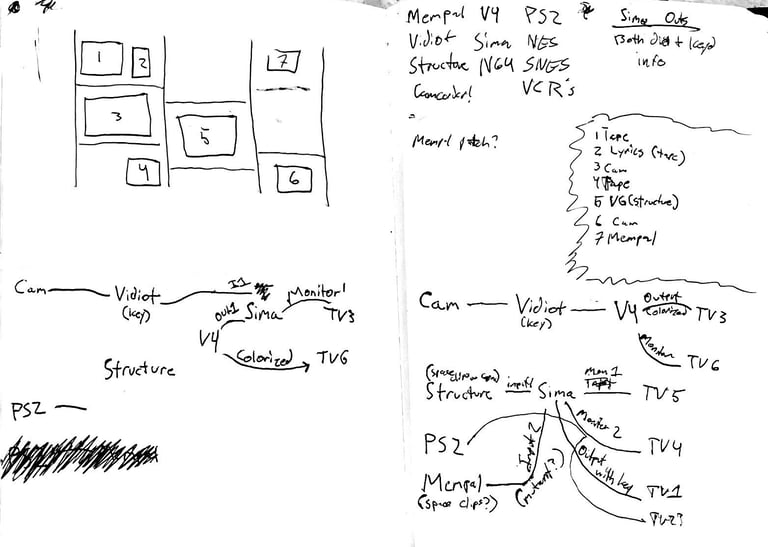 1
2
3
4
5
6
7
Cam
Vidiot
(key)
I1
Out1
Sima
Monitor1
TV3
V4
Colorized
TV6
Structure
PS2
Mempal V4 PS2
Vidiot Sima NES
Structure N64 SNES
Camcorder! VCR's
Sima Outs
Both dist + keyed
info
Mempal patch?
1 Tape
2 Lyrics (tape)
3 Cam
4 Tape
5 VG (structure)
6 Cam
7 Mempal
Cam
Vidiot
(key)
V4
Output
Colorized
TV3
Monitor
TV6
Structure
input1
Sima
Mon 1
TV5
PS2
Monitor 2
TV4
Mempal
(space clips?)
Input 2
(mutant?)
Output
with key
TV1